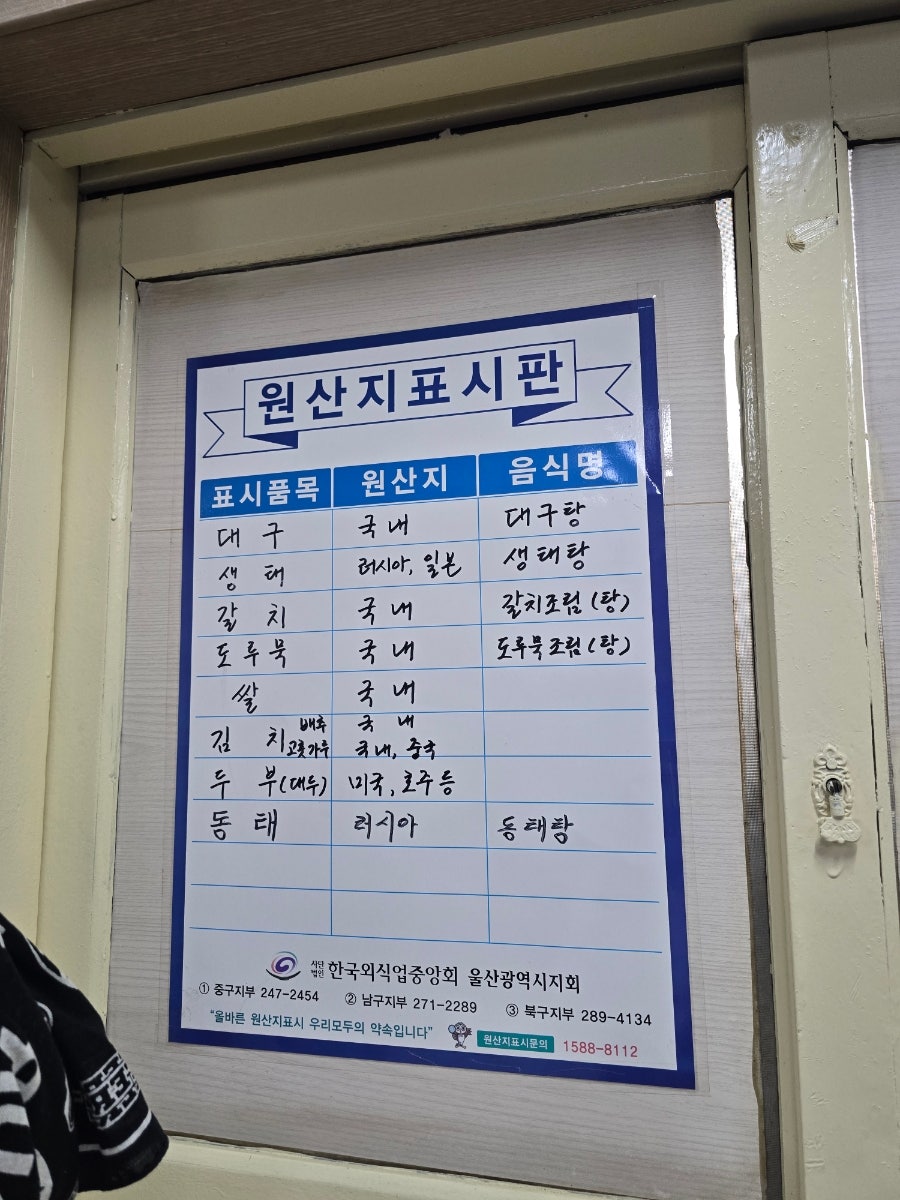 원산지표시판
표시품목 원산지 음식명
대구 국내 대구탕
생태 러시아, 일본 생태탕
갈치 국내 갈치조림(탕)
도루묵 국내 도루묵조림(탕)
쌀 국내
김치 배추 국내
고춧가루 국내, 중국
두부(대두) 미국, 호주 등
동태 러시아 동태탕
사단법인 한국외식업중앙회 울산광역시지회
① 중구지부 247-2454 ② 남구지부 271-2289 ③ 북구지부 289-4134
"올바른 원산지표시 우리모두의 약속입니다" 원산지표시문의 1588-8112